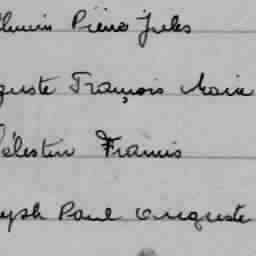 Pierre Jules
guste François Marie
Célestin Francis
seph Paul Auguste